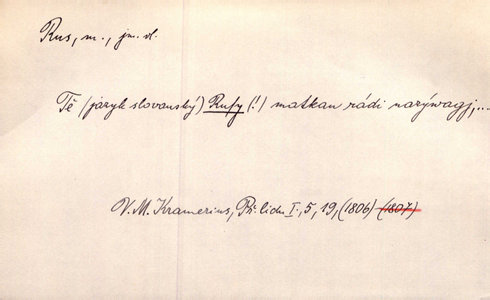 Rus, m., jm. vl.
Tě (jazyk slovanský) Rusy (!) matkau rádi nazýwagj,...
V. M. Kramerius, Př. lidu I., 5, 19, (1806) (1807)